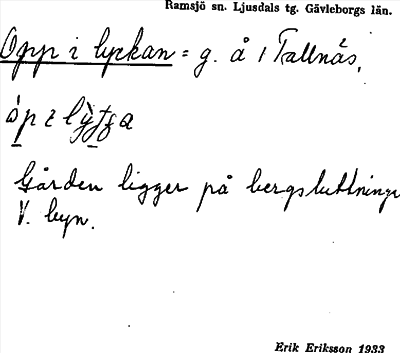 Ramsjö sn. Ljusdals tg. Gävleborgs län.
Opp i lyckan = g. å 1 Tallnäs.
Gården ligger på bergsluttningen
V. byn.
Erik Eriksson 1933